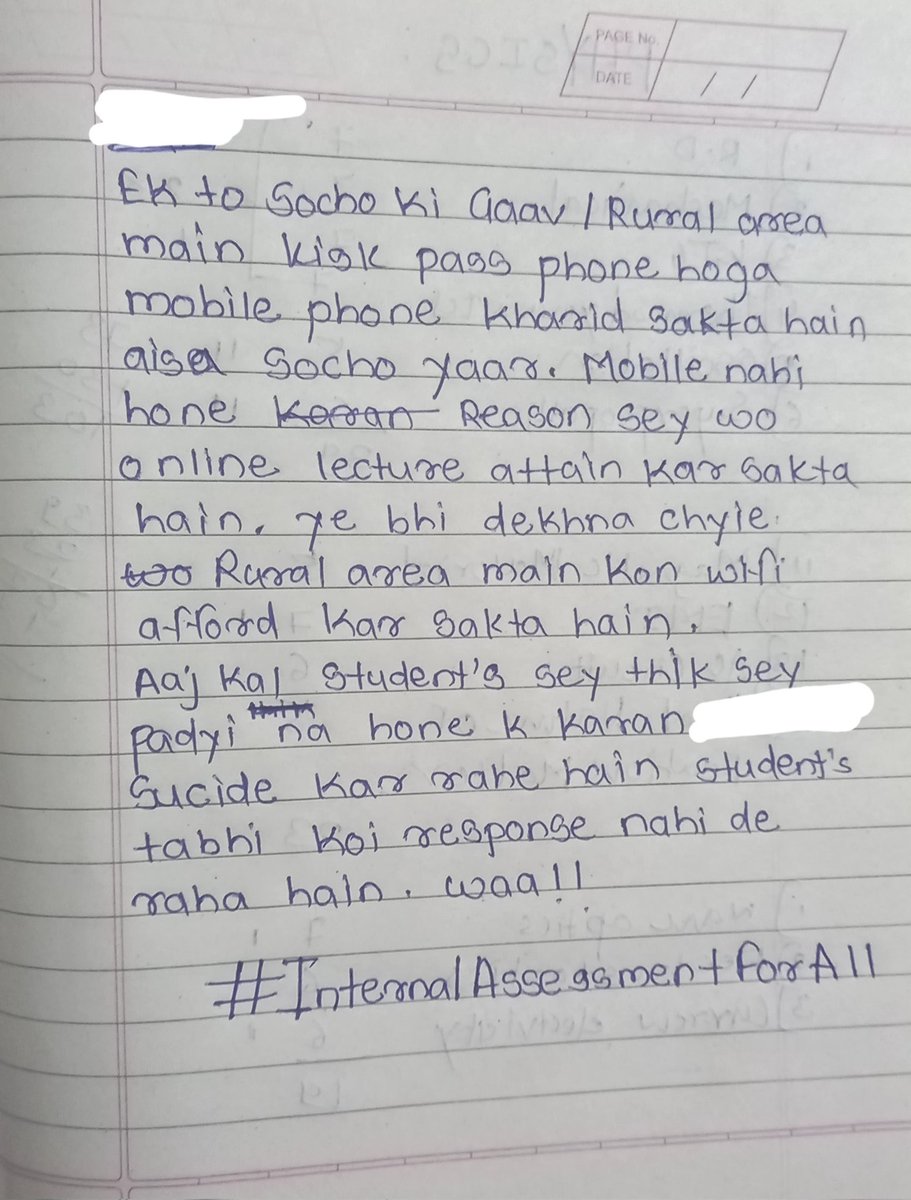 PAGE No.
DATE / /
Ek to Socho Ki Gaav / Rural area
main kisk pass phone hoga
mobile phone kharid sakta hain
aisa Socho yaar. Mobile nahi
hone Karan Reason sey wo
online lecture attain kar sakta
hain, ye bhi dekhna chyie.
too Rural area main kon wifi
afford kar sakta hain.
Aaj Kal Student's sey thik sey
padyi na hone k karan
Sucide kar rahe hain student's
tabhi koi response nahi de
raha hain. waa!!
#InternalAssessmentForAll